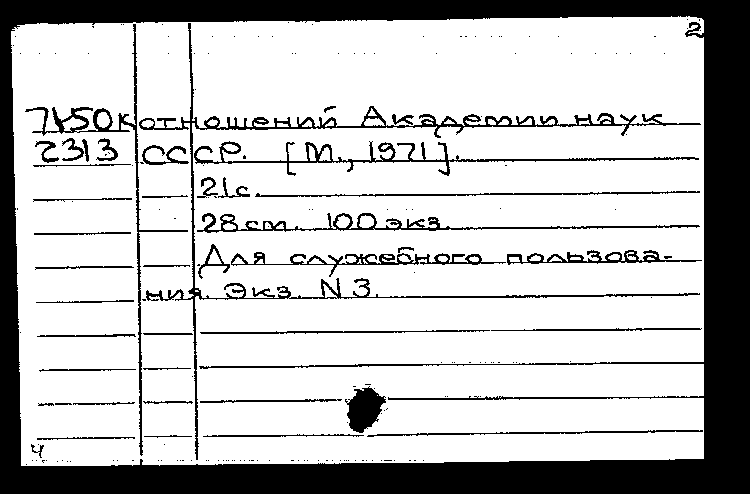 2
7450к отношений Академии наук
2313 СССР. [М., 1971].
21с.
28 см. 100 экз.
Для служебного пользова-
ния. Экз. N 3.
ч